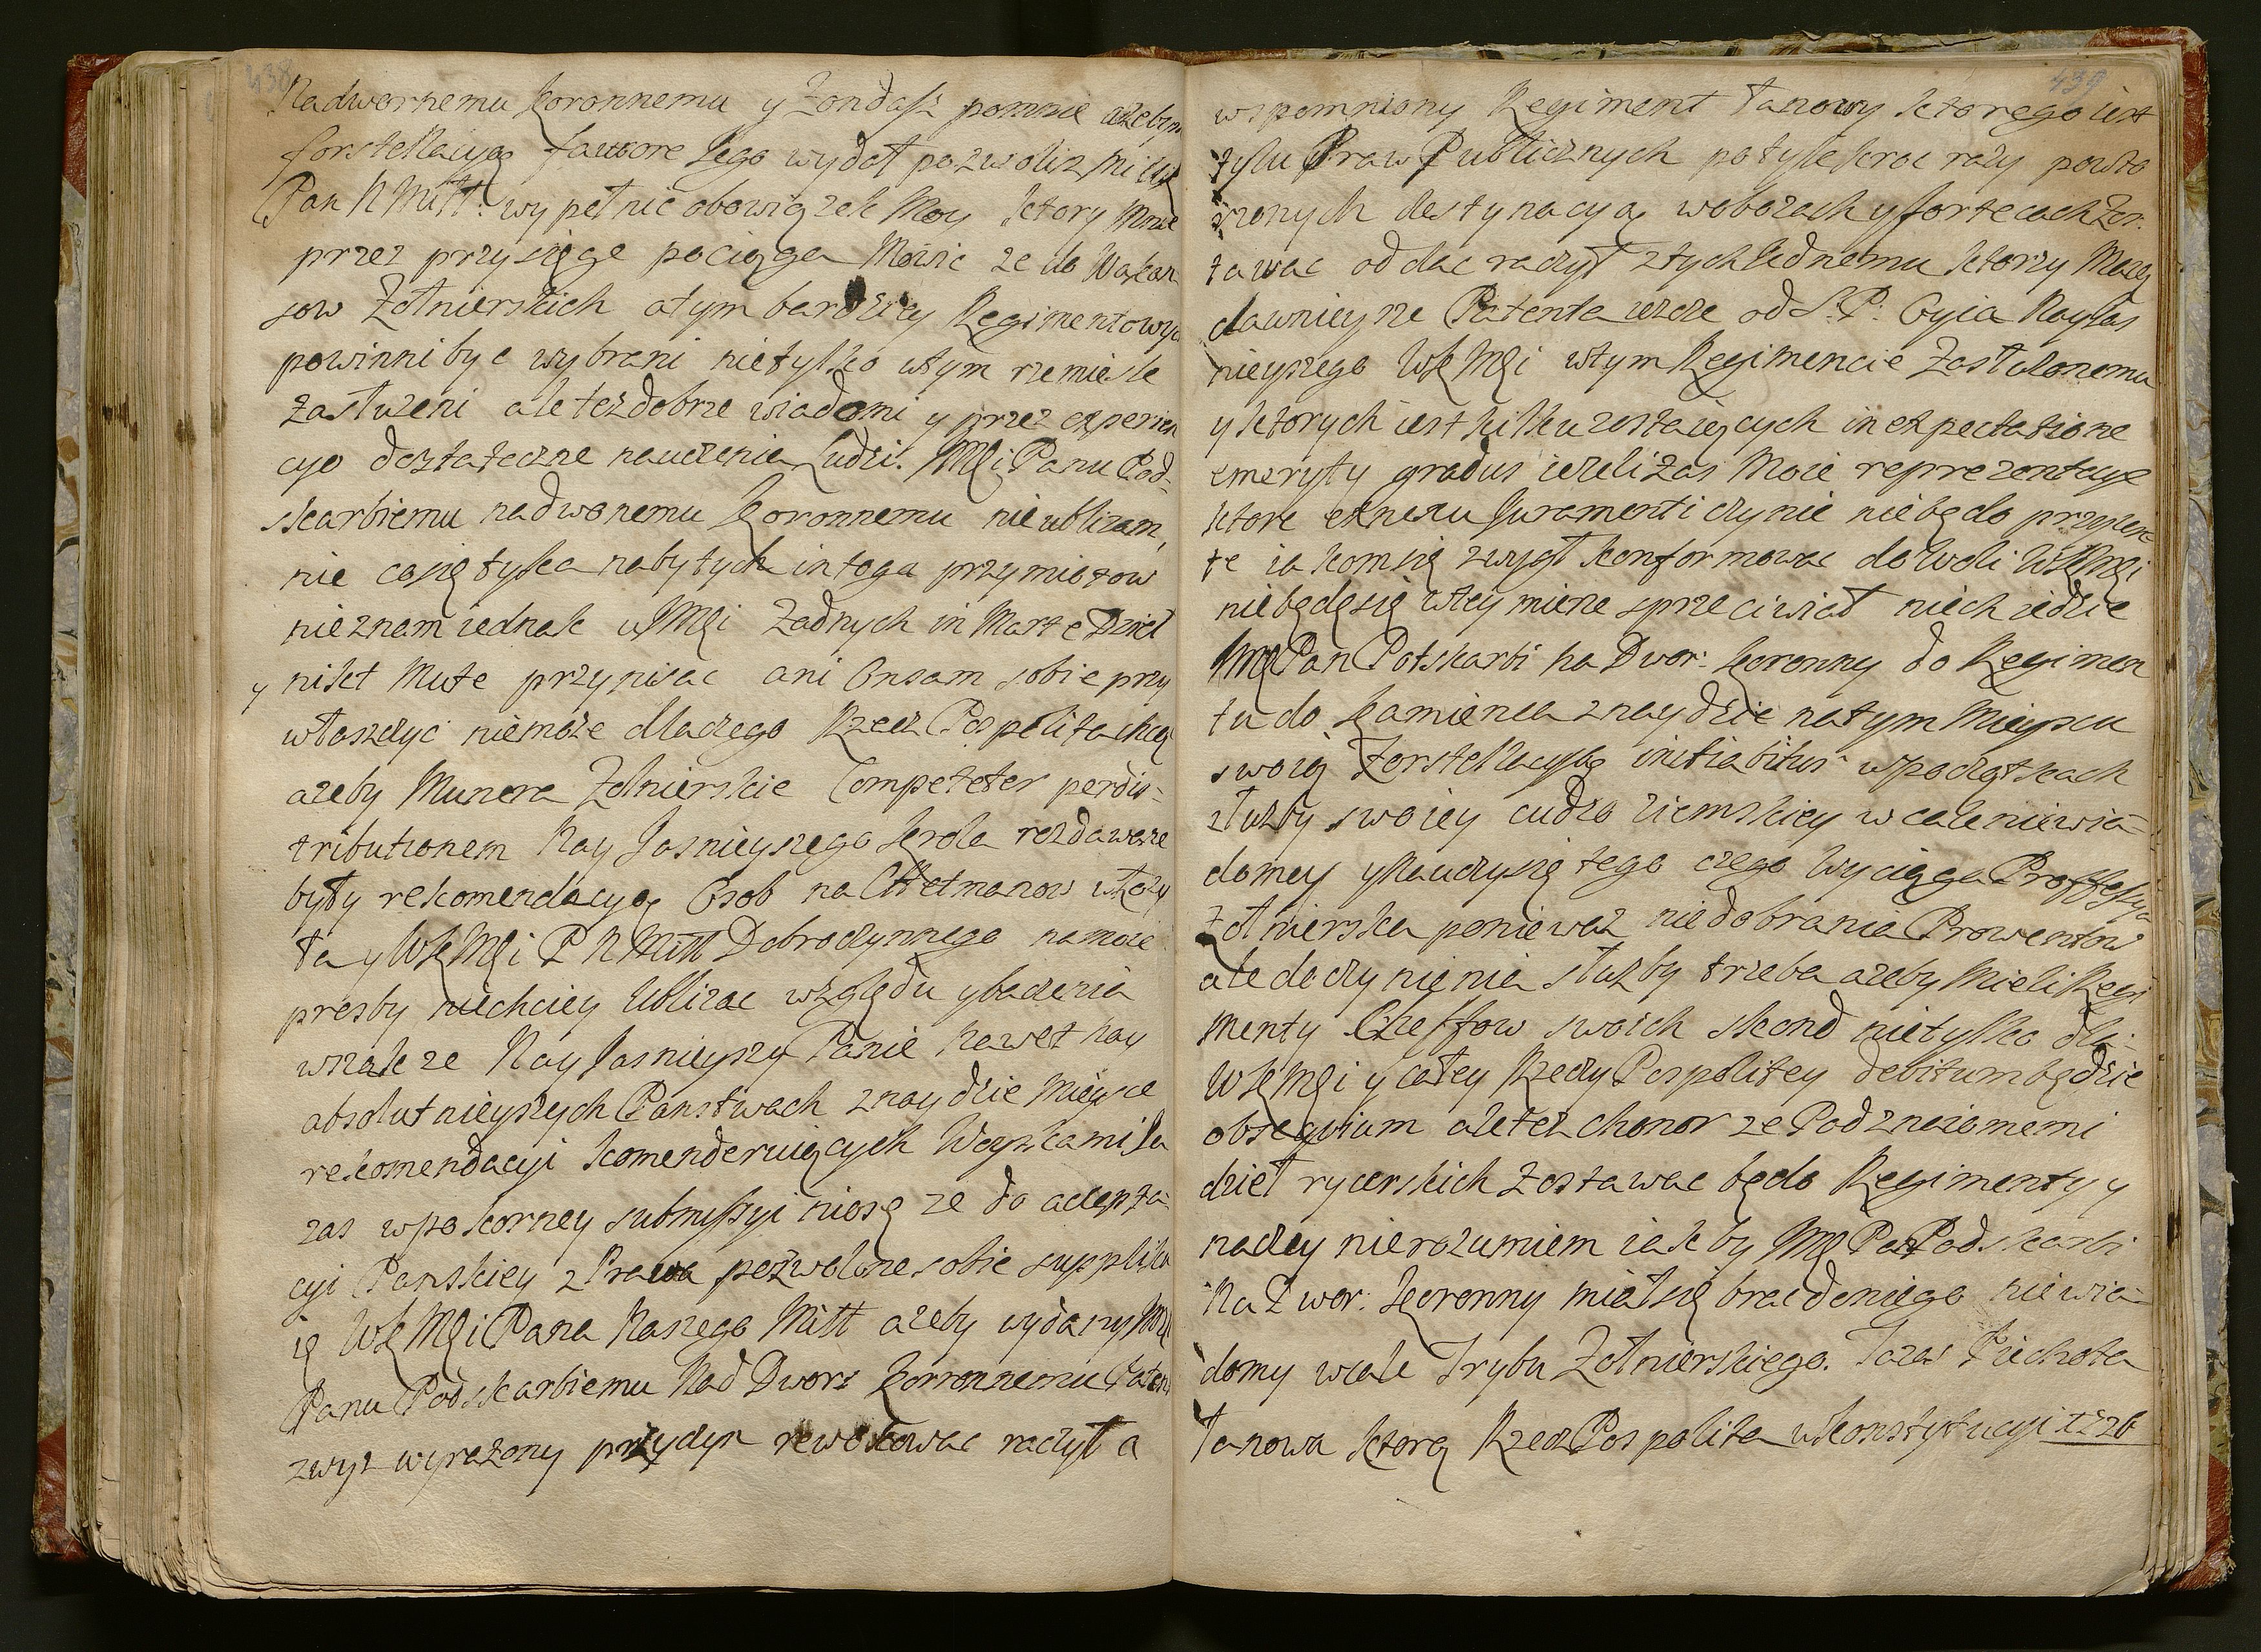 438
Nadwornemu Koronnemu y Żondasz pomnie ażebym
forsztellacyą fawore Jego wydał pozwolisz Miłł
Pan N Miłł: wypełnic obowiązek Moy ktory Mnie
przez przysięgę pociąga Mowic ze do Wakan
sow Zołnierskich a tym bardziey Regimentowych
powinni byc wybrani nietylko wtym rzemieśle
zasłuzeni ale tez dobrze wiadomi y przez experien
cyo dostateczne nauczenia Ludzi. JMĆi Panu Pod-
skarbiemu nadwonemu Koronnemu nieublizam,
nie cosię tylka nabytych in toga przymiotow
nieznam iednak w JMĆi Zadnych in Marte Dzieł
y nikt Mute przypisac ani On sam sobie przy
właszczyc niemoze dlaczego Rzecz Pospolita chcą
azeby Munera Zołnierskie Competeter perdis=
tributionem Nay Jasnieyszego Krola rozdawane
były rekomendacyą Osob na Chetmanow włozy
ła y WKMĆi P N Miłł Dobroczynnego na moie
prozby niechciey Ublizac względu y baczenia
wszak ze Nay Jasnieyszy Panie nawet nay
absolutnieyszych Panstwach znaydzie Mieysce
rekomendacyi komenderuiących Woyskami Ja
zas wpokorney submissyi niosę ze do accepta=
cyi Panskiey z Prawa pozwolone sobie supplik
ię WKMĆi Pana Naszego Miłł azeby wydany JMĆi
Panu Podskarbiemu Nad Dwor: Korronnemu Patent
zwyz wyrazony przydyn rewokowac raczył a
439
wspomniony Regiment Łanowy ktorego iest
tylu Praw Publicznych potylekroc razy powto
rzonych destynacya, wobozach y fortecach Zos:
tawac oddac raczył z tych Jednemu ktorzy Maią
dawnieysze Patenta ieszcze od S: P: Oyca Nayjas
nieyszego WKMĆi wtym Regimencie Zasłuzonemu
y ktorych iest kilku zostaiących in expectatione
emeryty gradus iezeli zas Moie reprezentacye
ktore ex nexu Juramenti czynie niebędo przyien
te iakom się zwykł konformowac do Woli WKMĆi
niebędę się wtey mierze sprzeciwiał niech iedzie
JMĆ Pan Potskarbi Na Dwor: Koronny do Regimen
tu do Kamienca znaydzie natym Mieyscu
swoią Forsztellacyą initiabitur wpoczątkach
słuzby swoiey cudzoziemskiey wcale niewia=
domey y Nauczy się tego czego Wyciąga Proffessya
Zołnierska poniewaz niedobrania Prowentow
ale do czynienia słuzby trzeba azeby Mieli Regi
menty Cheffow swoich skond nietylko dla=
WKMĆi y całey Rzeczy Pospolitey debitum będzie
obsequium ale tez chonor ze Pod znaiomemi
dzieł rycerskich Zostawac będo Regimenty y
naczey nierozumiem iak by JMĆ Pan Podskarbi
Na Dwor: Koronny miał się brac do niego niewia=
domy wcale Trybu Zołnierskiego. Tazas Piechota
Łanowa ktorą Rzecz Pospolita w Konstytucyi 1726